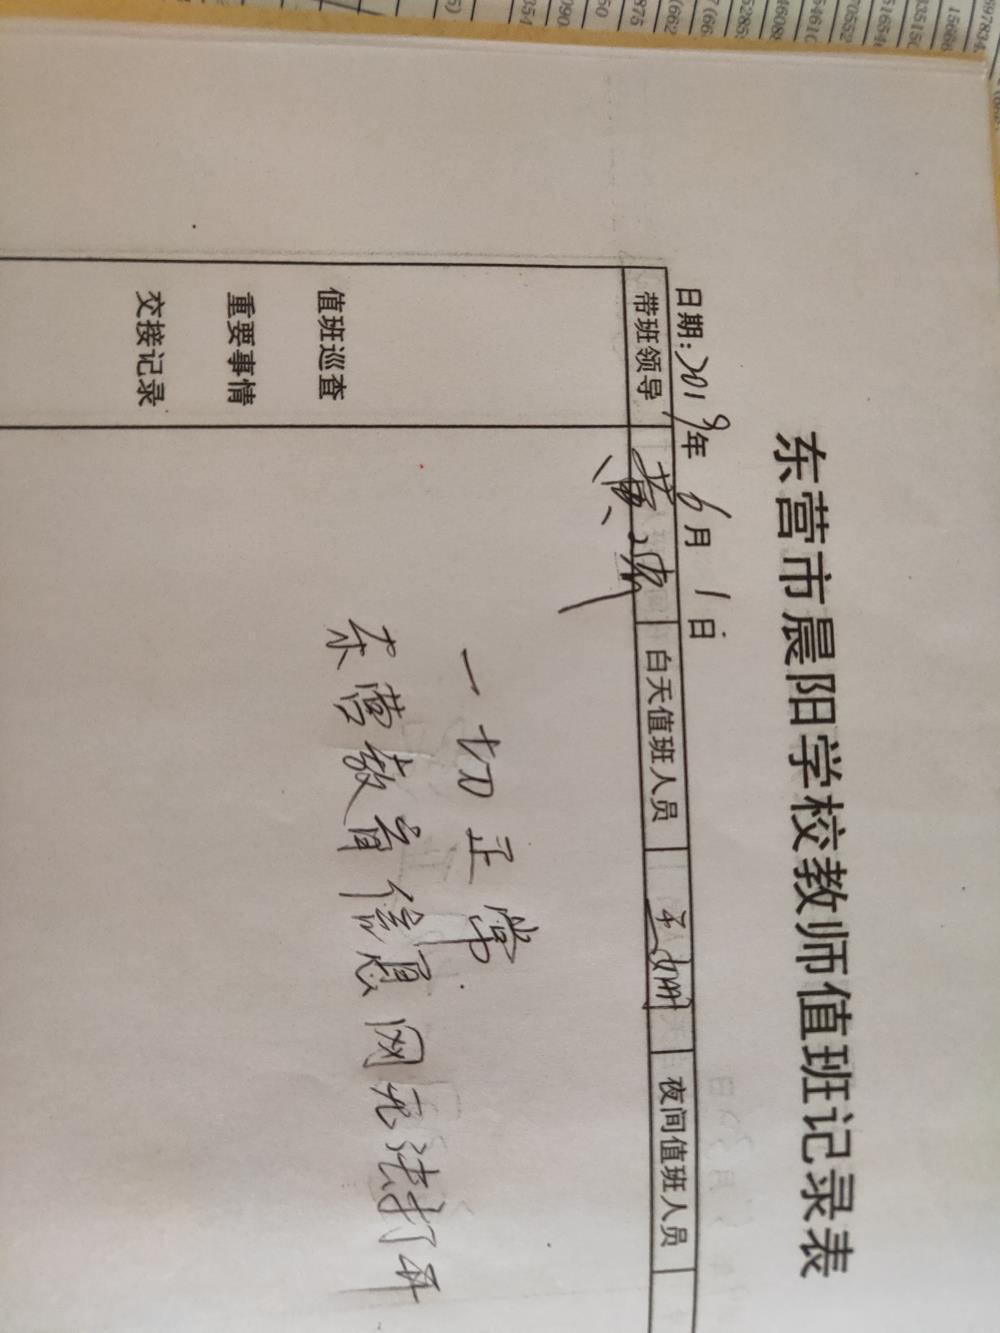 东营市晨阳学校教师值班记录表
日期:2019年 6月 1日
带班领导 黄 白天值班人员 王姗 夜间值班人员
值班巡查
重要事情
交接记录
一切正常
东营教育信息网无法打开